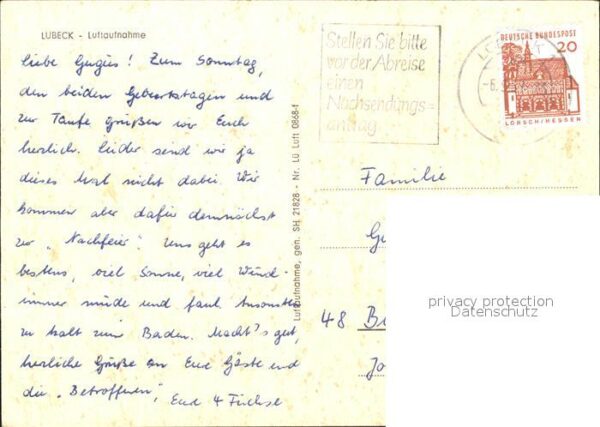 LÜBECK - Luftaufnahme
Liebe Gugus! Zum Sonntag,
den beiden Geburtstagen und
zur Taufe grüßen wir Euch
herzlich. Leider sind wir ja
dieses Mal nicht dabei. Wir
kommen aber dafür demnächst
zur "Nachfeier". Uns geht es
bestens, viel Sonne, viel Wind -
immer müde und faul. Ansonsten
zu kalt zum Baden. Macht's gut,
herzliche Grüße an Eure Gäste und
die "Betroffenen", Eure 4 Füchse
Luftaufnahme, gen. SH 21828 - Nr. LÜ Luft 0868-f
Stellen Sie bitte
vor der Abreise
einen
Nachsendungs=
antrag
DEUTSCHE BUNDESPOST
20
LORSCH/HESSEN
Familie
48
privacy protection
Datenschutz